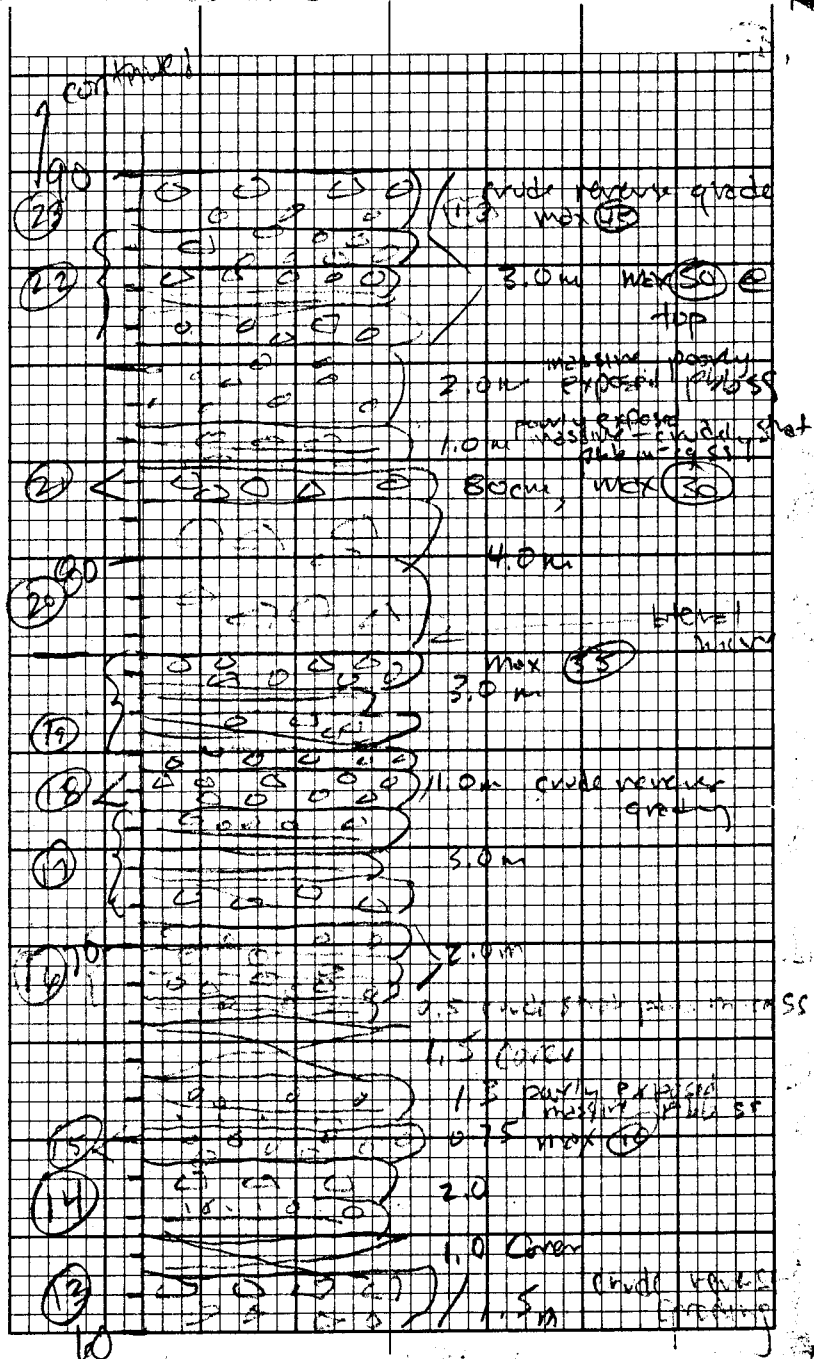 continued
90
23
1.3 crude reverse grade
max 45
22
3.0 m max 50 @
top
2.0 m massive poorly
exposed pbb ss
1.0 m poorly exposed
massive - crudely strat
pbb m-cg ss
21
80 cm, max 30
80
4.0 m
20
max 35
3.0 m
19
18
1.0 m crude reverse
grading
17
3.0 m
70
16
2.0 m
0.5 crude strat
ss
1.5 Cover
1.5 poorly exposed
massive pbb ss
15
0.75 max
14
2.0
1.0 Cover
13
1.5 m
crude reverse
grading
60